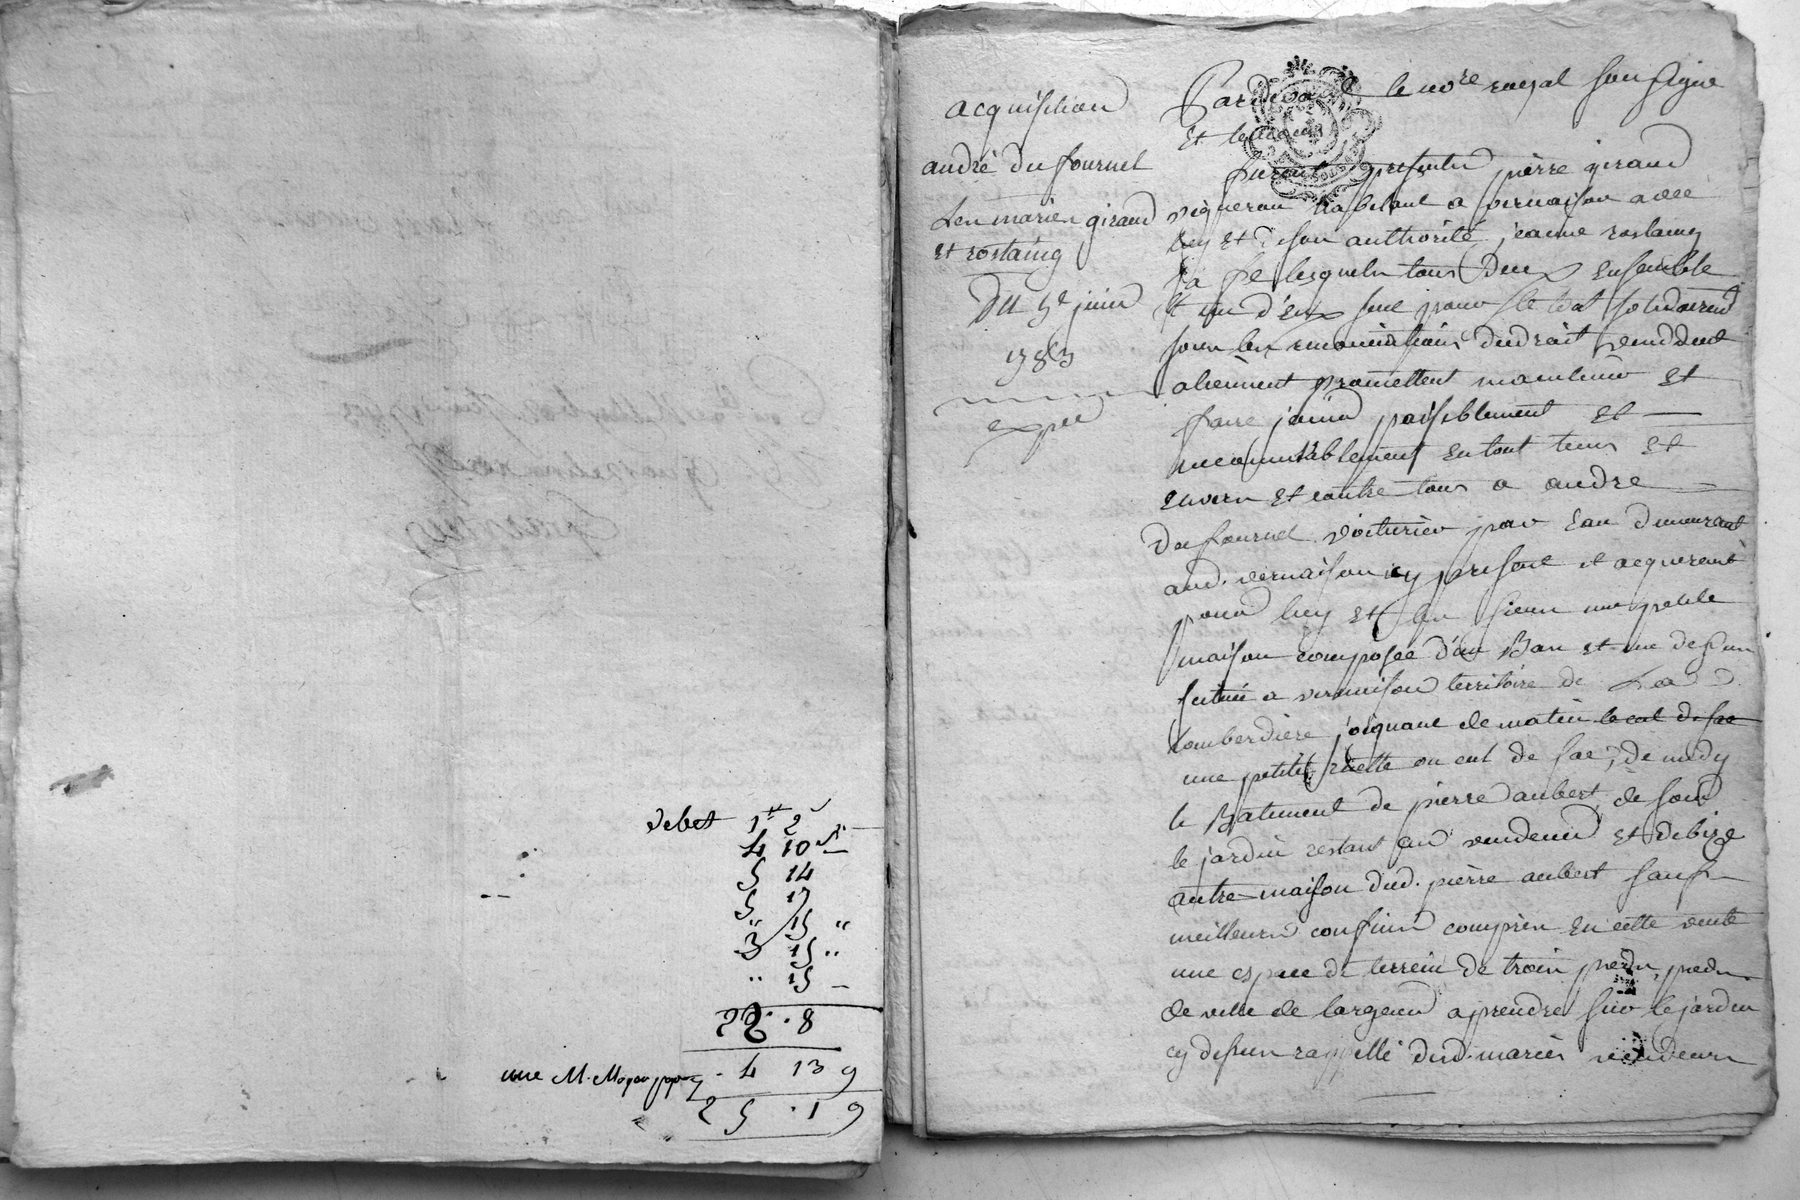 debet 1tt 2
4 10 s
5 14
5 17
" 15 "
3 15 "
" 15 –
4 13 9
25 . 1 9
acquisition
andré du fournel
Les mariés giraud
et rostaing
Du 5e juin
1783
expée
Pardevant le nore royal soussigné
Et temoins
furent presents pierre giraud
vigneron habitant a vernaison avec
luy et de son authorité jeanne rostaing
sa fe lesquels tous deux ensemble
et un d'eux seul pour le tout solidairemt
sous les renonciations dudroit vendent
alienent promettent maintenir et
faire jouir paisiblement et
incommutablement en tout tems et
envers et contre tous a andré
du fournel voiturier par eau demeurant
aud. vernaison cy present et acquerant
pour luy et les siens une petite
maison composée d'un Bas et un dessus
située a vernaison territoire de La
comberdiere joignant de matin le cul de sac
une petite ruelle ou cul de sac, de midy
le Batiment de pierre aubert, de soir
le jardin restant au vendeur et de bize
autre maison dud. pierre aubert sauf
meilleurs confins compris en cette vente
une espace de terrein de trois pieds, pieds
de ville de largeur aprendre sur le jardin
cy dessus rappellé desd. mariés vendeurs